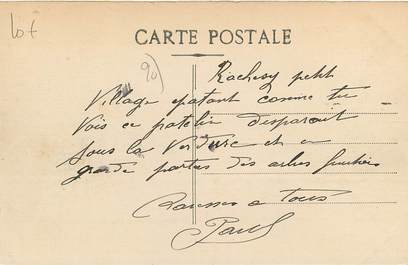 Lot
CARTE POSTALE
90)
Rachesy petit
Village epatant comme tu
Vois ce patelin disparait
sous la Verdure et en
grande parties des arbres fruitiers
a tous
Paul